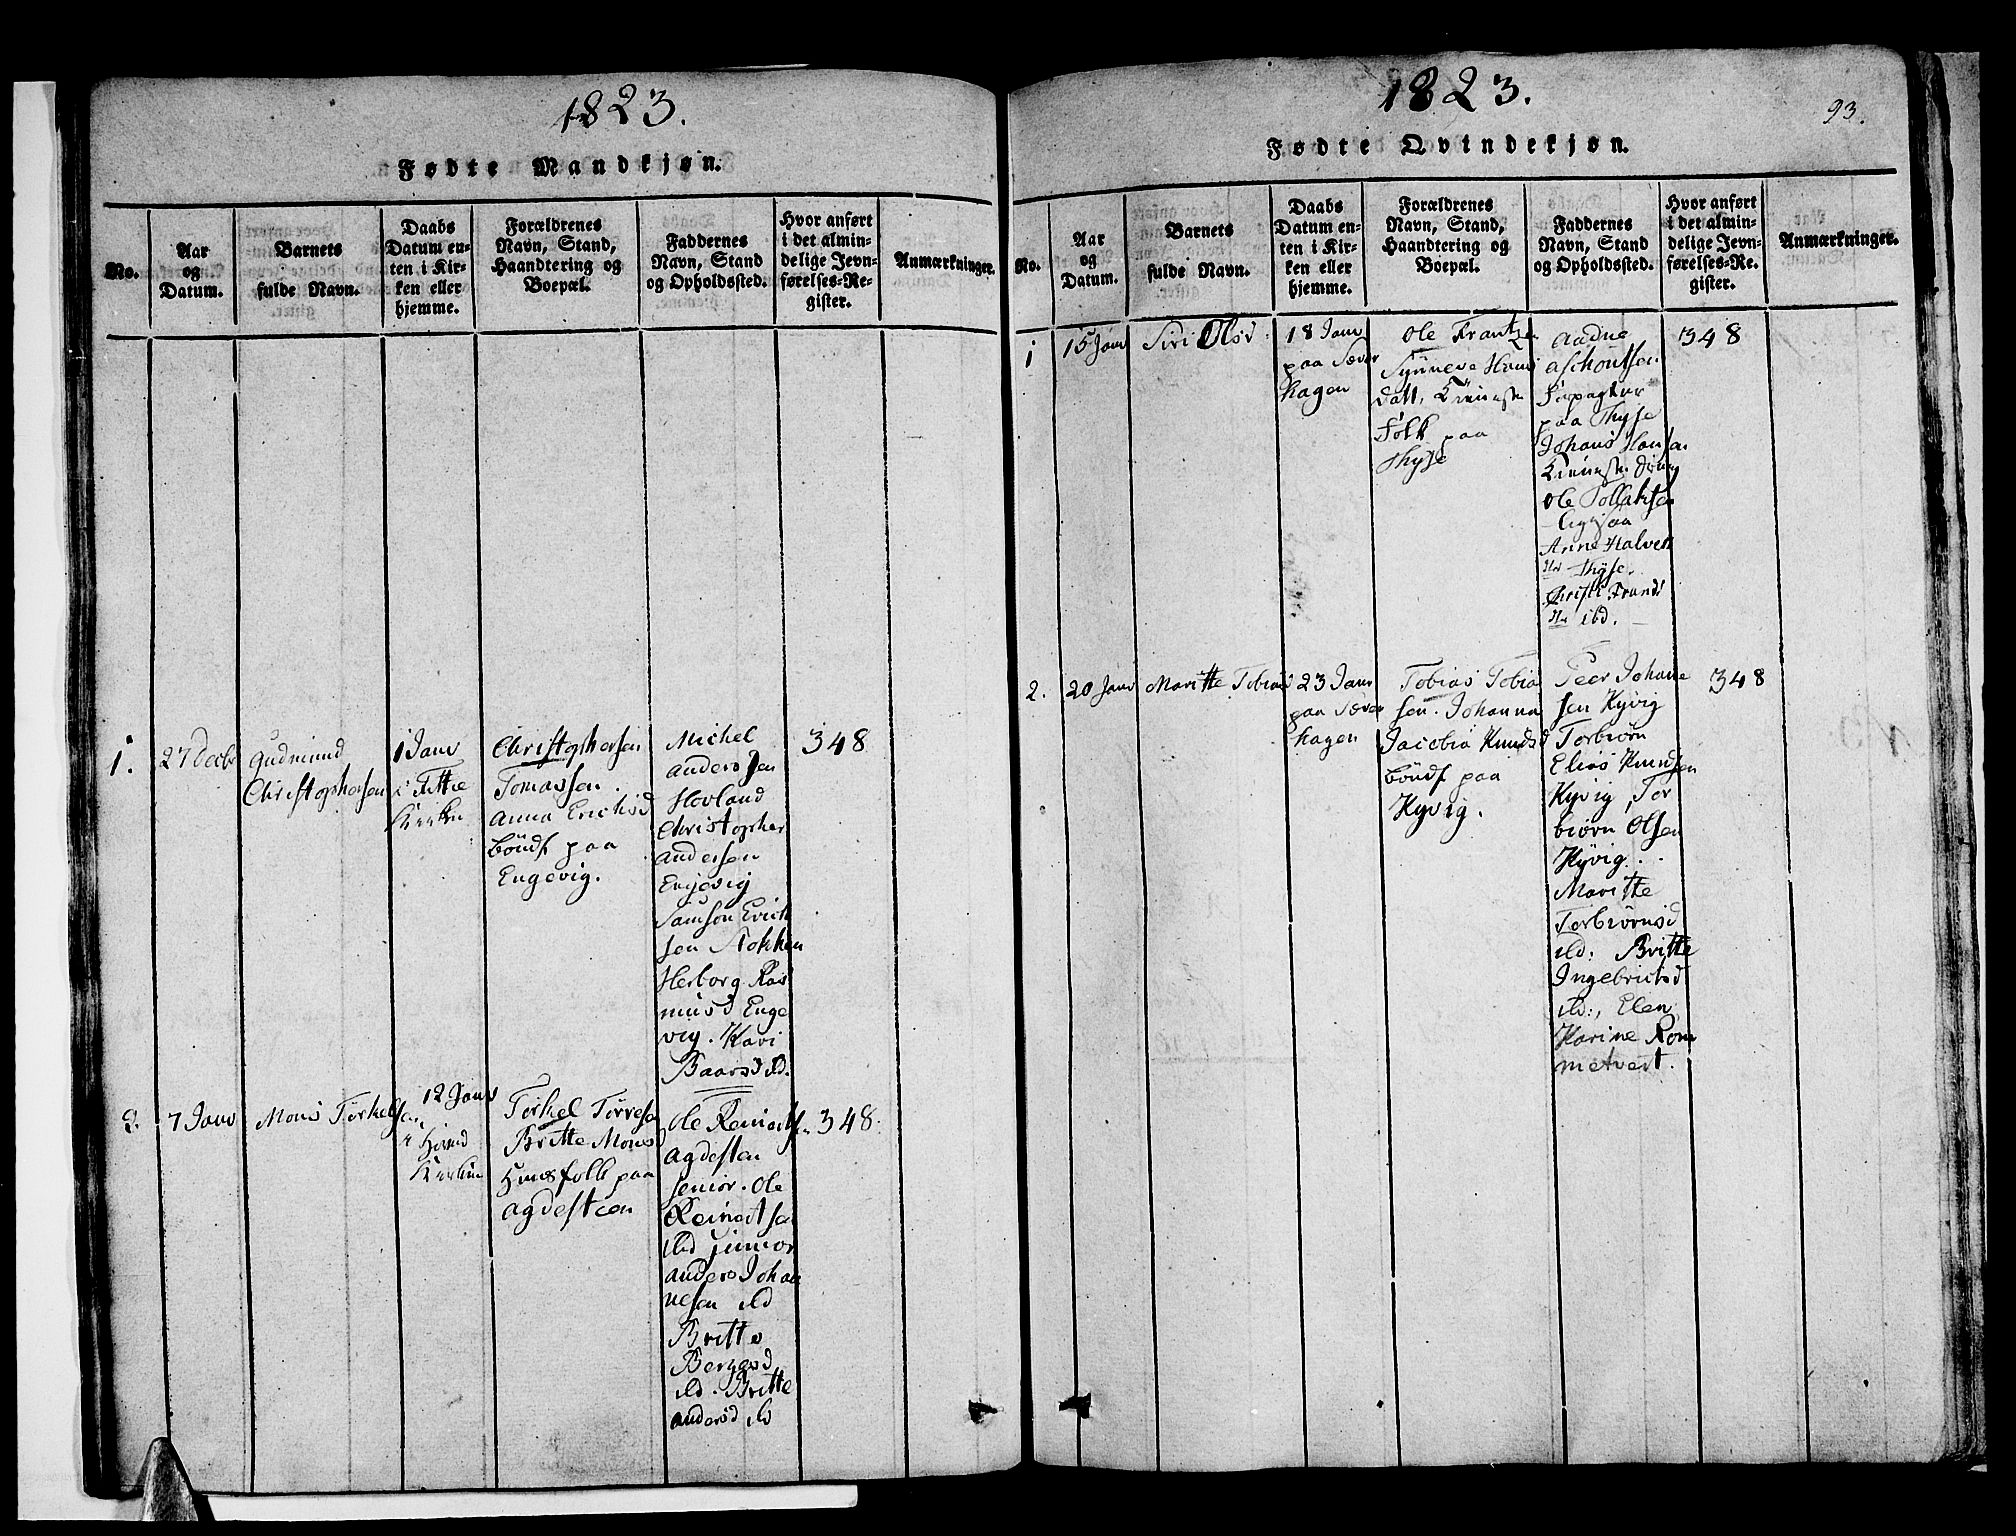 1823.
Fødte Mandkjøn.
No.
Aar
og
Datum.
Barnets
fulde Navn.
Daabs
Datum en-
ten i Kir-
ken eller
hjemme.
Forældrenes
Navn, Stand,
Haandtering og
Boepæl.
Faddernes
Navn, Stand
og Opholdssted.
Hvor anført
i det almin-
delige Jevn-
førelses-Re-
gister.
Anmærkninger.
1.
27 Decbr
Gudmund
Christophersen
1 Janv
i Fittie
Kirken
Christophersen
Tomassen.
Anna Erichsd
bøndf paa
Engevig.
Michel
Andersen
Hovland
Christopher
Andersen
Engevig
Samson Erich
sen Stokken
Herborg Ras
musd Enge
vig. Kari
Baarsd ibd.
348
2.
7 Janv
Mons Tørkelsen
12 Janv
Kirken
Tørkel Tørresen
Britte Monsd
Huusfolk paa
Agdesteen
Ole Reinerts
Agdesten
senior. Ole
Reinertsen
ibd junior
Anders Johan
nesen ibd
Britte
Bergesd
ibd. Britte
Andersd ibd
348.
1823.
93.
Fødte Qvindekjøn.
No.
Aar
og
Datum.
Barnets
fulde Navn.
Daabs
Datum en-
ten i Kir-
ken eller
hjemme.
Forældrenes
Navn, Stand,
Haandtering og
Boepæl.
Faddernes
Navn, Stand
og Opholdssted.
Hvor anført
i det almin-
delige Jevn-
førelses-Re-
gister.
Anmærkninger.
1
15 Janv
Siri Olsd
18 Janv
paa Sæver
hagen
Ole Frantzen
Synneve Hans
datt,
Folk paa
Thyse
Aadne
Aschoutsen
Forpagter
paa Thyse
Johans Hansen
Ole Tollaksen
Anne Halvers
Thyse.
Christi Frands
ibd.
348
2.
20 Janv
Maritte Tobiasd
23 Janv
paa Sæver
hagen
Tobias Tobia
sen. Johanna
Jacobia Knudsd
bøndf paa
Kyvig.
Peer Johane
sen Kyvig
Torbiørn
Elias Knudsen
Kyvig, Tor
biørn Olsen
Kyvig.
Maritte
Torbiørnsd
ibd: Britte
Ingebrictsd
ibd:, Elen
Karine Rom
metvert.
348